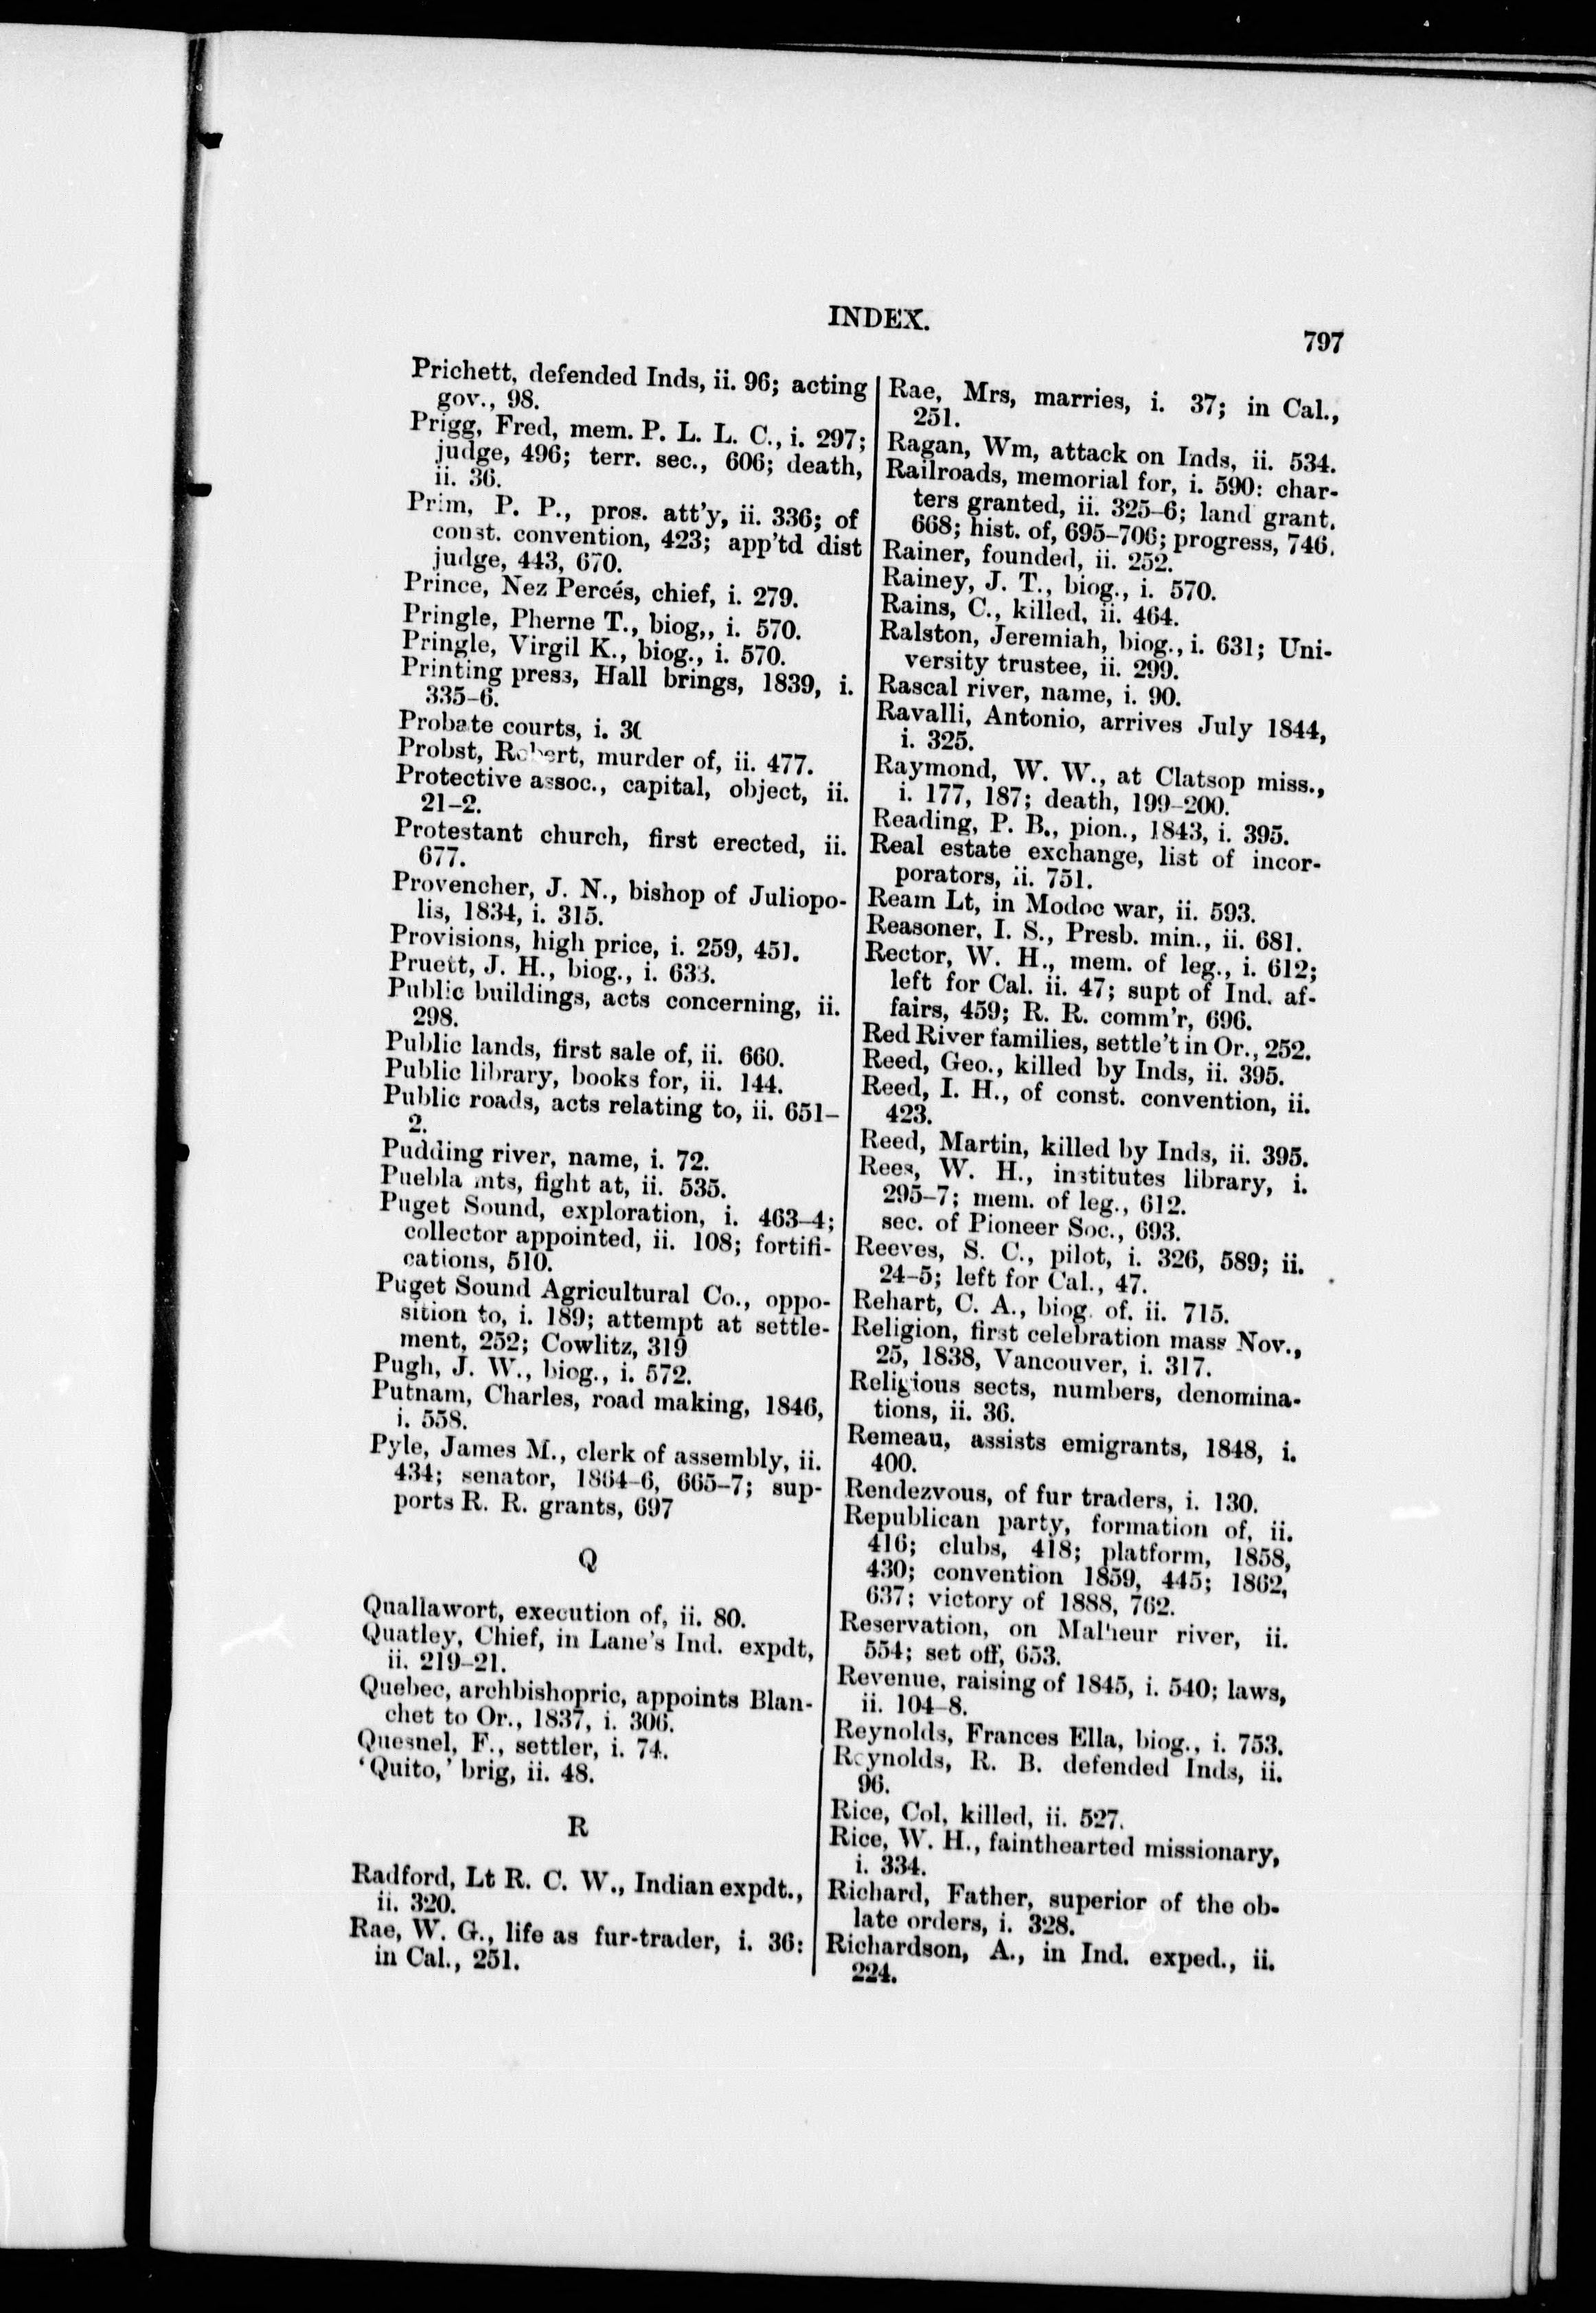 INDEX.
797
Prichett, defended Inds, ii. 96; acting
gov., 98.
Prigg, Fred, mem. P. L. L. C., i. 297;
judge, 496; terr. sec., 606; death,
ii. 36.
Prim, P. P., pros. att'y, ii. 336; of
const. convention, 423; app'td dist
judge, 443, 670.
Prince, Nez Percés, chief, i. 279.
Pringle, Pherne T., biog,, i. 570.
Pringle, Virgil K., biog., i. 570.
Printing press, Hall brings, 1839, i.
335-6.
Probate courts, i.
Probst, Robert, murder of, ii. 477.
Protective assoc., capital, object, ii.
21-2.
Protestant church, first erected, ii.
677.
Provencher, J. N., bishop of Juliopo-
lis, 1834, i. 315.
Provisions, high price, i. 259, 451.
Pruett, J. H., biog., i. 633.
Public buildings, acts concerning, ii.
298.
Public lands, first sale of, ii. 660.
Public library, books for, ii. 144.
Public roads, acts relating to, ii. 651-
2.
Pudding river, name, i. 72.
Puebla mts, fight at, ii. 535.
Puget Sound, exploration, i. 463-4;
collector appointed, ii. 108; fortifi-
cations, 510.
Puget Sound Agricultural Co., oppo-
sition to, i. 189; attempt at settle-
ment, 252; Cowlitz, 319
Pugh, J. W., biog., i. 572.
Putnam, Charles, road making, 1846,
i. 558.
Pyle, James M., clerk of assembly, ii.
434; senator, 1864-6, 665-7; sup-
ports R. R. grants, 697
Q
Quallawort, execution of, ii. 80.
Quatley, Chief, in Lane's Ind. expdt,
ii. 219-21.
Quebec, archbishopric, appoints Blan-
chet to Or., 1837, i. 306.
Quesnel, F., settler, i. 74.
'Quito,' brig, ii. 48.
R
Radford, Lt R. C. W., Indian expdt.,
ii. 320.
Rae, W. G., life as fur-trader, i. 36:
in Cal., 251.
Rae, Mrs, marries, i. 37; in Cal.,
251.
Ragan, Wm, attack on Inds, ii. 534.
Railroads, memorial for, i. 590: char-
ters granted, ii. 325-6; land grant,
668; hist. of, 695-706; progress, 746.
Rainer, founded, ii. 252.
Rainey, J. T., biog., i. 570.
Rains, C., killed, ii. 464.
Ralston, Jeremiah, biog., i. 631; Uni-
versity trustee, ii. 299.
Rascal river, name, i. 90.
Ravalli, Antonio, arrives July 1844,
i. 325.
Raymond, W. W., at Clatsop miss.,
i. 177, 187; death, 199-200.
Reading, P. B., pion., 1843, i. 395.
Real estate exchange, list of incor-
porators, ii. 751.
Ream Lt, in Modoc war, ii. 593.
Reasoner, I. S., Presb. min., ii. 681.
Rector, W. H., mem. of leg., i. 612;
left for Cal. ii. 47; supt of Ind. af-
fairs, 459; R. R. comm'r, 696.
Red River families, settle't in Or., 252.
Reed, Geo., killed by Inds, ii. 395.
Reed, I. H., of const. convention, ii.
423.
Reed, Martin, killed by Inds, ii. 395.
Rees, W. H., institutes library, i.
295-7; mem. of leg., 612.
sec. of Pioneer Soc., 693.
Reeves, S. C., pilot, i. 326, 589; ii.
24-5; left for Cal., 47.
Rehart, C. A., biog. of. ii. 715.
Religion, first celebration mass Nov.,
25, 1838, Vancouver, i. 317.
Religious sects, numbers, denomina-
tions, ii. 36.
Remeau, assists emigrants, 1848, i.
400.
Rendezvous, of fur traders, i. 130.
Republican party, formation of, ii.
416; clubs, 418; platform, 1858,
430; convention 1859, 445; 1862,
637; victory of 1888, 762.
Reservation, on Malheur river, ii.
554; set off, 653.
Revenue, raising of 1845, i. 540; laws,
ii. 104-8.
Reynolds, Frances Ella, biog., i. 753.
Reynolds, R. B. defended Inds, ii.
96.
Rice, Col, killed, ii. 527.
Rice, W. H., fainthearted missionary,
i. 334.
Richard, Father, superior of the ob-
late orders, i. 328.
Richardson, A., in Ind. exped., ii.
224.